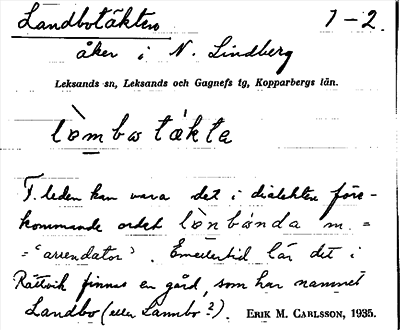 Landbotäkten 1-2.
åker i N. Lindberg
Leksands sn, Leksands och Gagnefs tg, Kopparbergs län.
lòmbotàkta
F. leden kan vara det i dialekten före-
kommande ordet lònbònda m. =
= 'arrendator'. Emellertid lär det i
Rättvik finnas en gård, som har namnet
Landbo (eller Lannbo?). ERIK M. CARLSSON, 1935.